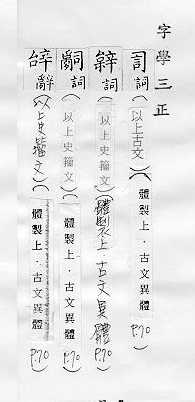 字學三正
司詞(以上古文)(體製上．古文異體 P.70)
辝詞(以上史籀文)(體製上 古文異體 P.70)
嗣詞(以上史籀文)(體製上．古文異體 P.70)
辤辭(以上史籀文)(體製上．古文異體 P.70)